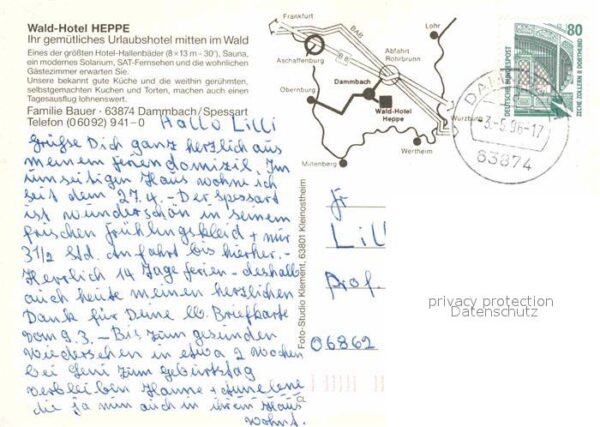 Wald-Hotel HEPPE
Ihr gemütliches Urlaubshotel mitten im Wald
Eines der größten Hotel-Hallenbäder (8×13 m - 30°), Sauna,
ein modernes Solarium, SAT-Fernsehen und die wohnlichen
Gästezimmer erwarten Sie.
Unsere bekannt gute Küche und die weithin gerühmten,
selbstgemachten Kuchen und Torten, machen auch einen
Tagesausflug lohnenswert.
Familie Bauer · 63874 Dammbach/Spessart
Telefon (06092) 941-0
Hallo Lilli
Grüße Dich ganz herzlich aus
meinem Feriendomizil. Im
umseitigen Haus wohne ich
seit dem 27.4. - Der Spessart
ist wunderschön in seinem
frischen Frühlingskleid + nur
3 1/2 Std. Anfahrt bis hierher. -
Herrlich 14 Tage Ferien - deshalb
auch heute meinen herzlichen
Dank für Deine lb. Briefkarte
vom 9.3. - Bis zum gesunden
Wiedersehen in etwa 2 Wochen
bei Leni zum Geburtstag
verbleiben Hanne +
die ja nun auch in ihrem Haus
wohnt.
Frankfurt
BAB
Lohr
Aschaffenburg
Abfahrt
Rohrbrunn
Dammbach
Obernburg
Wald-Hotel
Heppe
Würzburg
Wertheim
Miltenberg
Foto-Studio Klement, 63801 Kleinostheim
80
DEUTSCHE BUNDESPOST
ZECHE ZOLLERN II DORTMUND
-3.-5.96-17
63874
Fr
Lill
Prof.
06862
privacy protection
Datenschutz